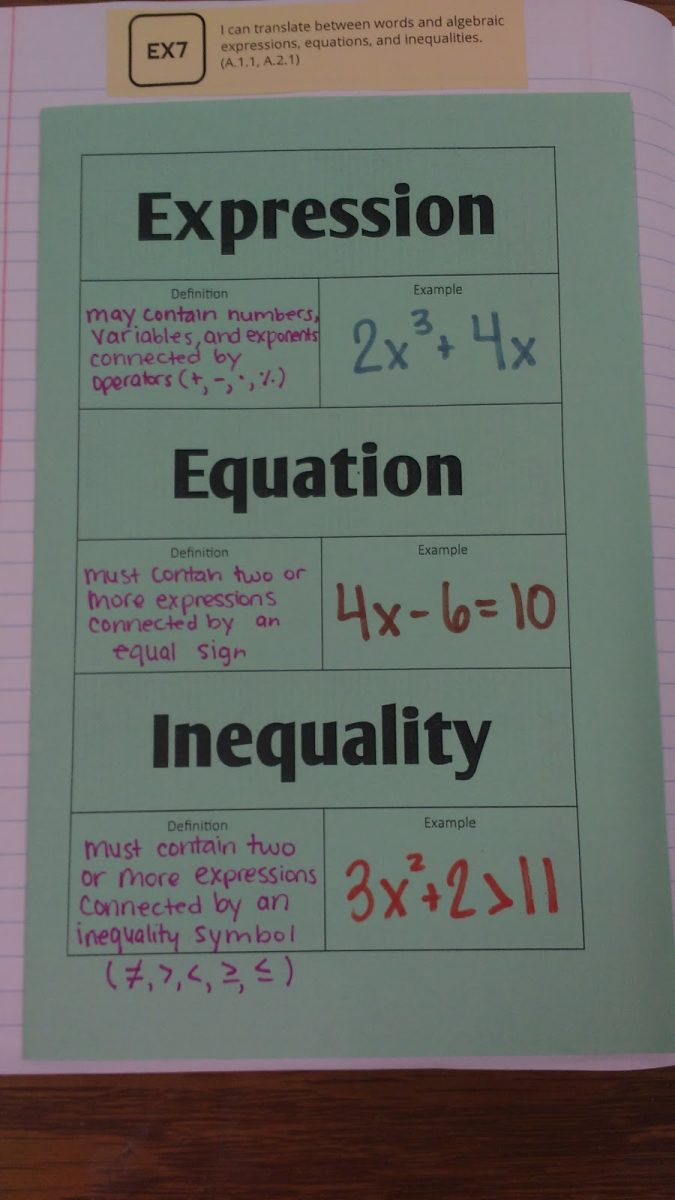 EX7
I can translate between words and algebraic
expressions, equations, and inequalities.
(A.1.1, A.2.1)
Expression
Definition
may contain numbers,
variables, and exponents
connected by
operators (+, -, ·, ÷)
Example
2x³ + 4x
Equation
Definition
must contan two or
more expressions
connected by an
equal sign
Example
4x - 6 = 10
Inequality
Definition
must contain two
or more expressions
connected by an
inequality symbol
(≠, >, <, ≥, ≤)
Example
3x² + 2 > 11